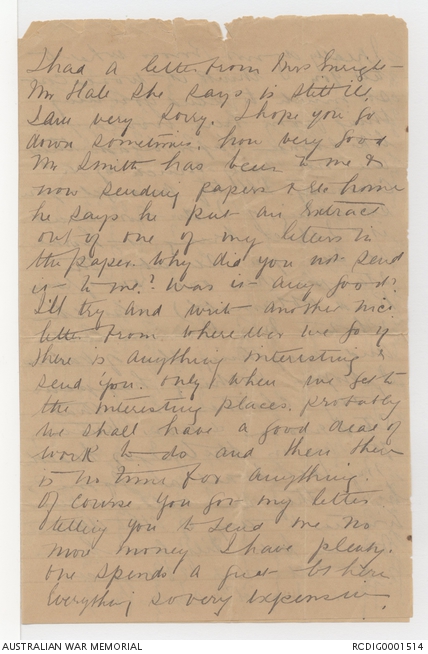 I had a letter from Mrs Knight -
Mr Hall she says is still ill.
I am very sorry. I hope you go
down sometimes. how very good
Mr Smith has been to me &
now sending papers &c home
he says he put an extract
out of one of my letters in
the paper. Why did you not send
it to me? Was it any good?
I'll try and write another nice
letter from wherever we go if
there is anything interesting &
send you. Only when we get to
the interesting places. probably
we shall have a good deal of
work to do and then there
is no time for anything.
Of course you got my letter
telling you to send me no
more money I have plenty.
One spends a great here
Everything so very expensive.
AUSTRALIAN WAR MEMORIAL
RCDIG0001514